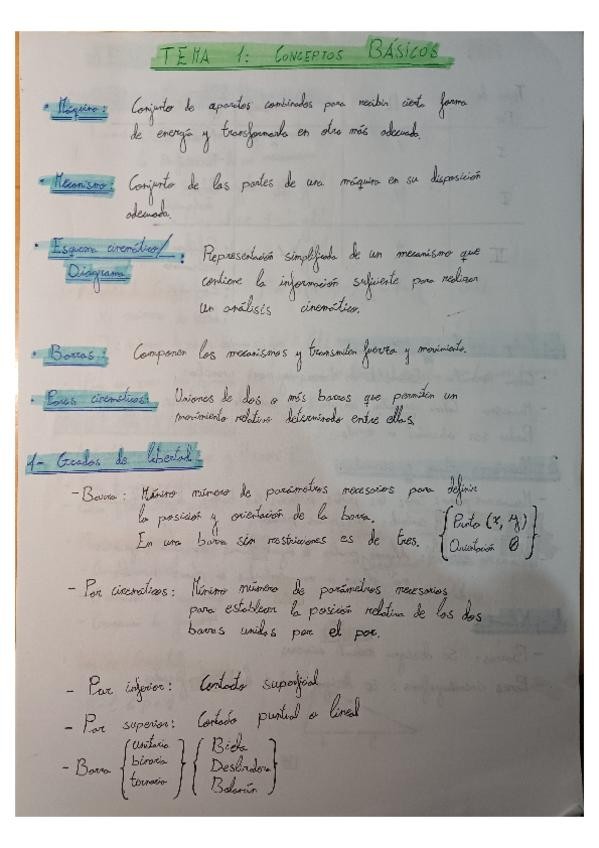 TEMA 1: CONCEPTOS BÁSICOS
• Máquina: Conjunto de aparatos combinados para recibir cierta forma
de energía y transformarla en otra más adecuada.
• Mecanismo: Conjunto de las partes de una máquina en su disposición
adecuada.
• Esquema cinemático/
Diagrama: Representación simplificada de un mecanismo que
contiene la información suficiente para realizar
un análisis cinemático.
• Barras: Componen los mecanismos y transmiten fuerza y movimiento.
• Pares cinemáticos: Uniones de dos o más barras que permiten un
movimiento relativo determinado entre ellas.
1- Grados de libertad
- Barra: Mínimo número de parámetros necesarios para definir
la posición y orientación de la barra.
En una barra sin restricciones es de tres. { Punto (x, y)
Orientación θ }
- Par cinemáticos: Mínimo número de parámetros necesarios
para establecer la posición relativa de las dos
barras unidas por el par.
- Par inferior: Contacto superficial
- Par superior: Contacto puntual o lineal
- Barra { unitaria
binaria
ternaria } { Biela
Deslizadera
Balancín }